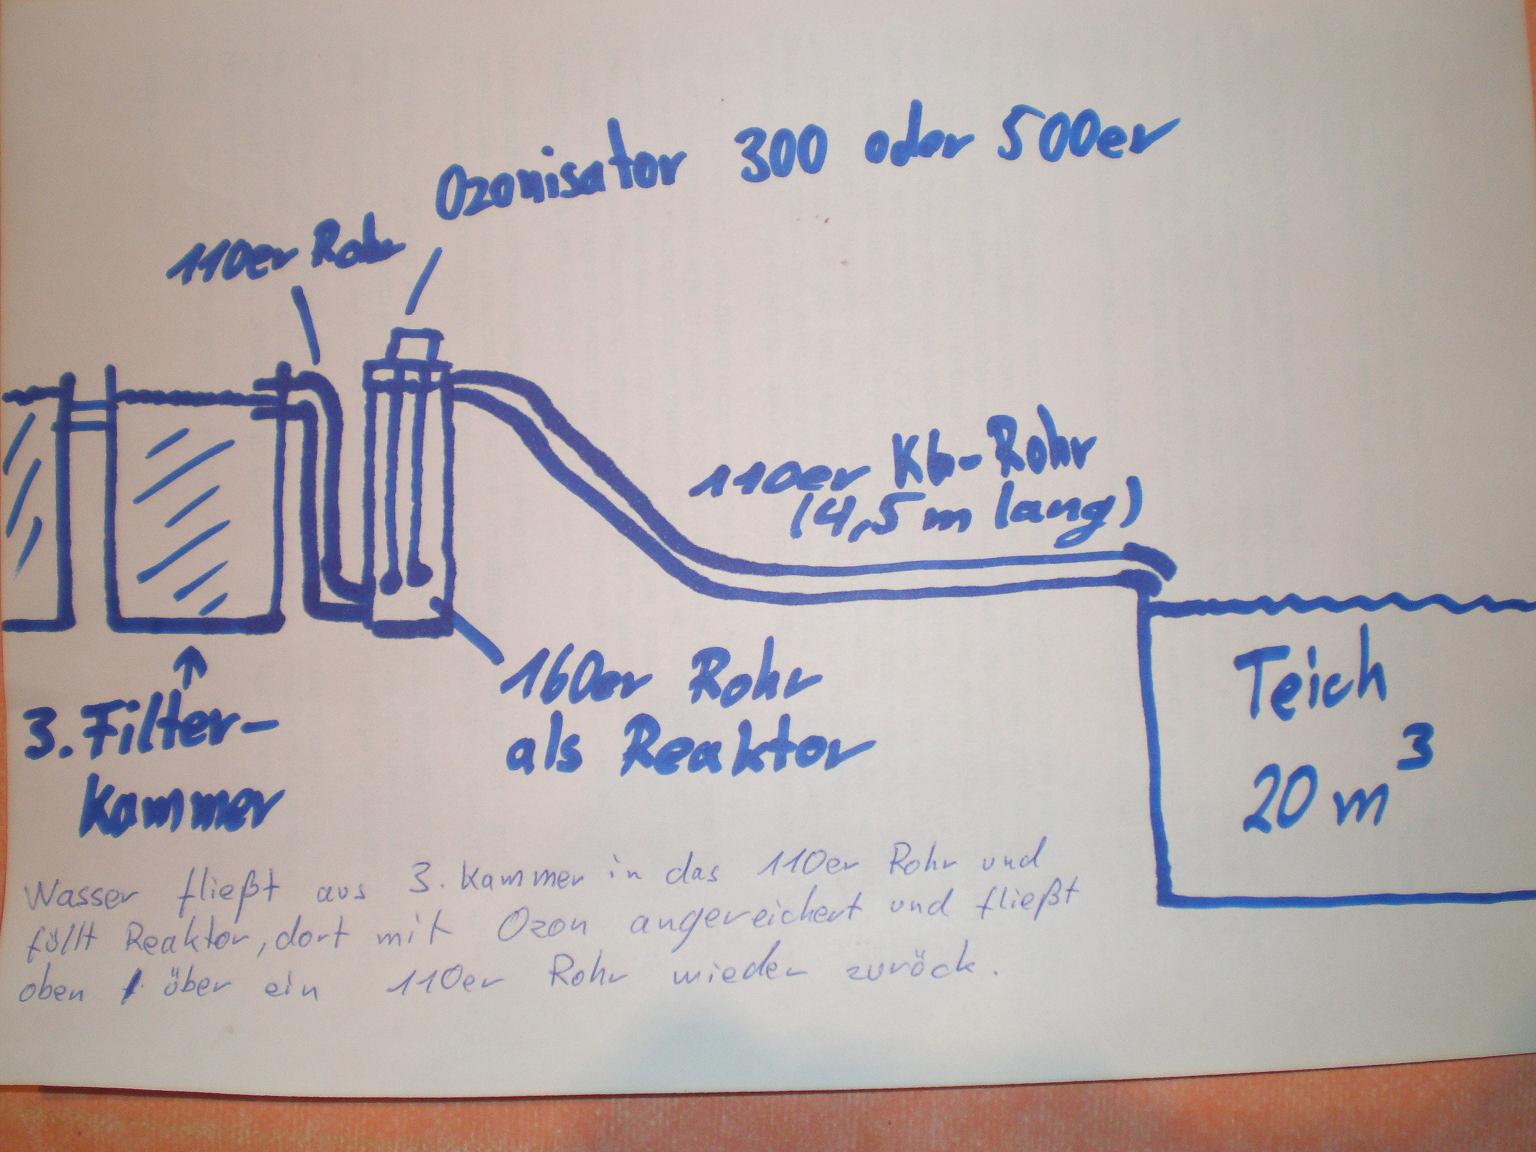 Ozonisator 300 oder 500er
110er Rohr
110er KG-Rohr
(4,5 m lang)
160er Rohr
als Reaktor
Teich
20 m³
3. Filter-
kammer
Wasser fließt aus 3. Kammer in das 110er Rohr und
füllt Reaktor, dort mit Ozon angereichert und fließt
oben über ein 110er Rohr wieder zurück.